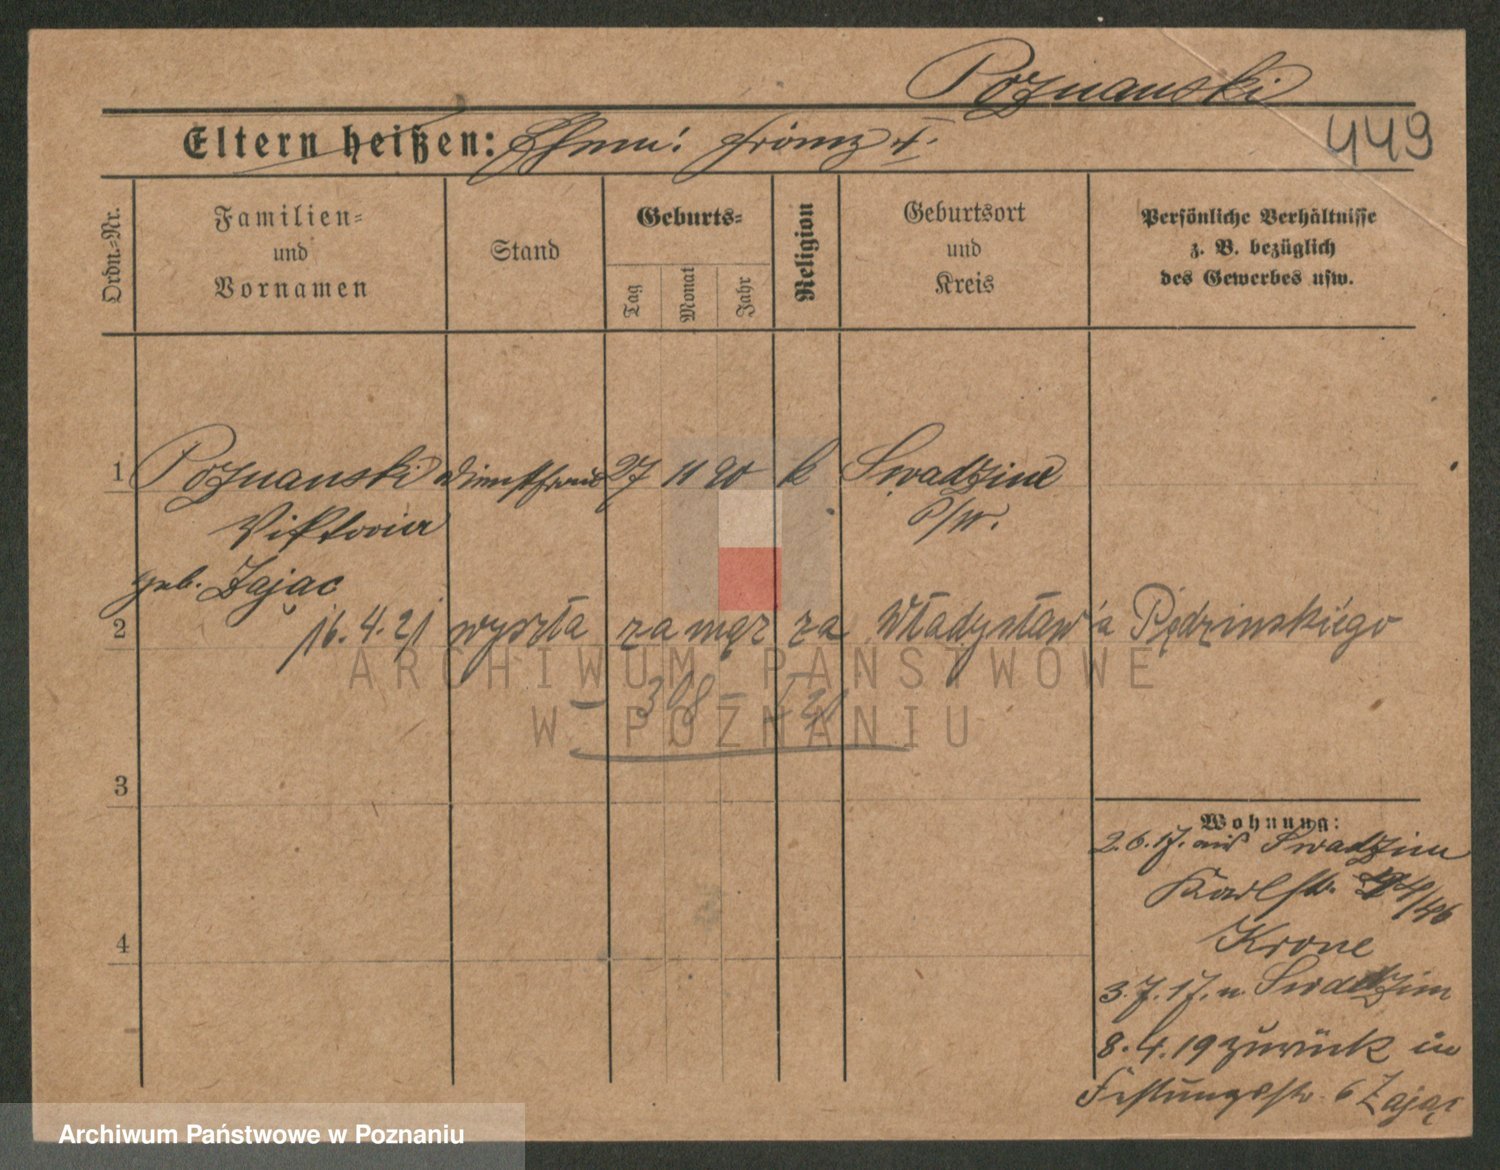 Poznanski
Eltern heißen: Ehem: Franz †.
449
Ordn.-Nr.
Familien-
und
Vornamen
Stand
Geburts-
Tag
Monat
Jahr
Religion
Geburtsort
und
Kreis
Persönliche Verhältnisse
z. B. bezüglich
des Gewerbes usw.
1 Poznanski 27 11 90 k Swadzim
Viktoria P/W.
geb. Zając
2 16.4.21 wyszła za mąż za Władysław'a Pędzinskiego
3
Wohnung:
2.6.17. aus Swadzim
Karlstr.
Krone
4
3.7.17. n. Swadzim
8.4.19 zurück in
Festungsstr. 6 Zając
ARCHIWUM PAŃSTWOWE
W POZNANIU
Archiwum Państwowe w Poznaniu